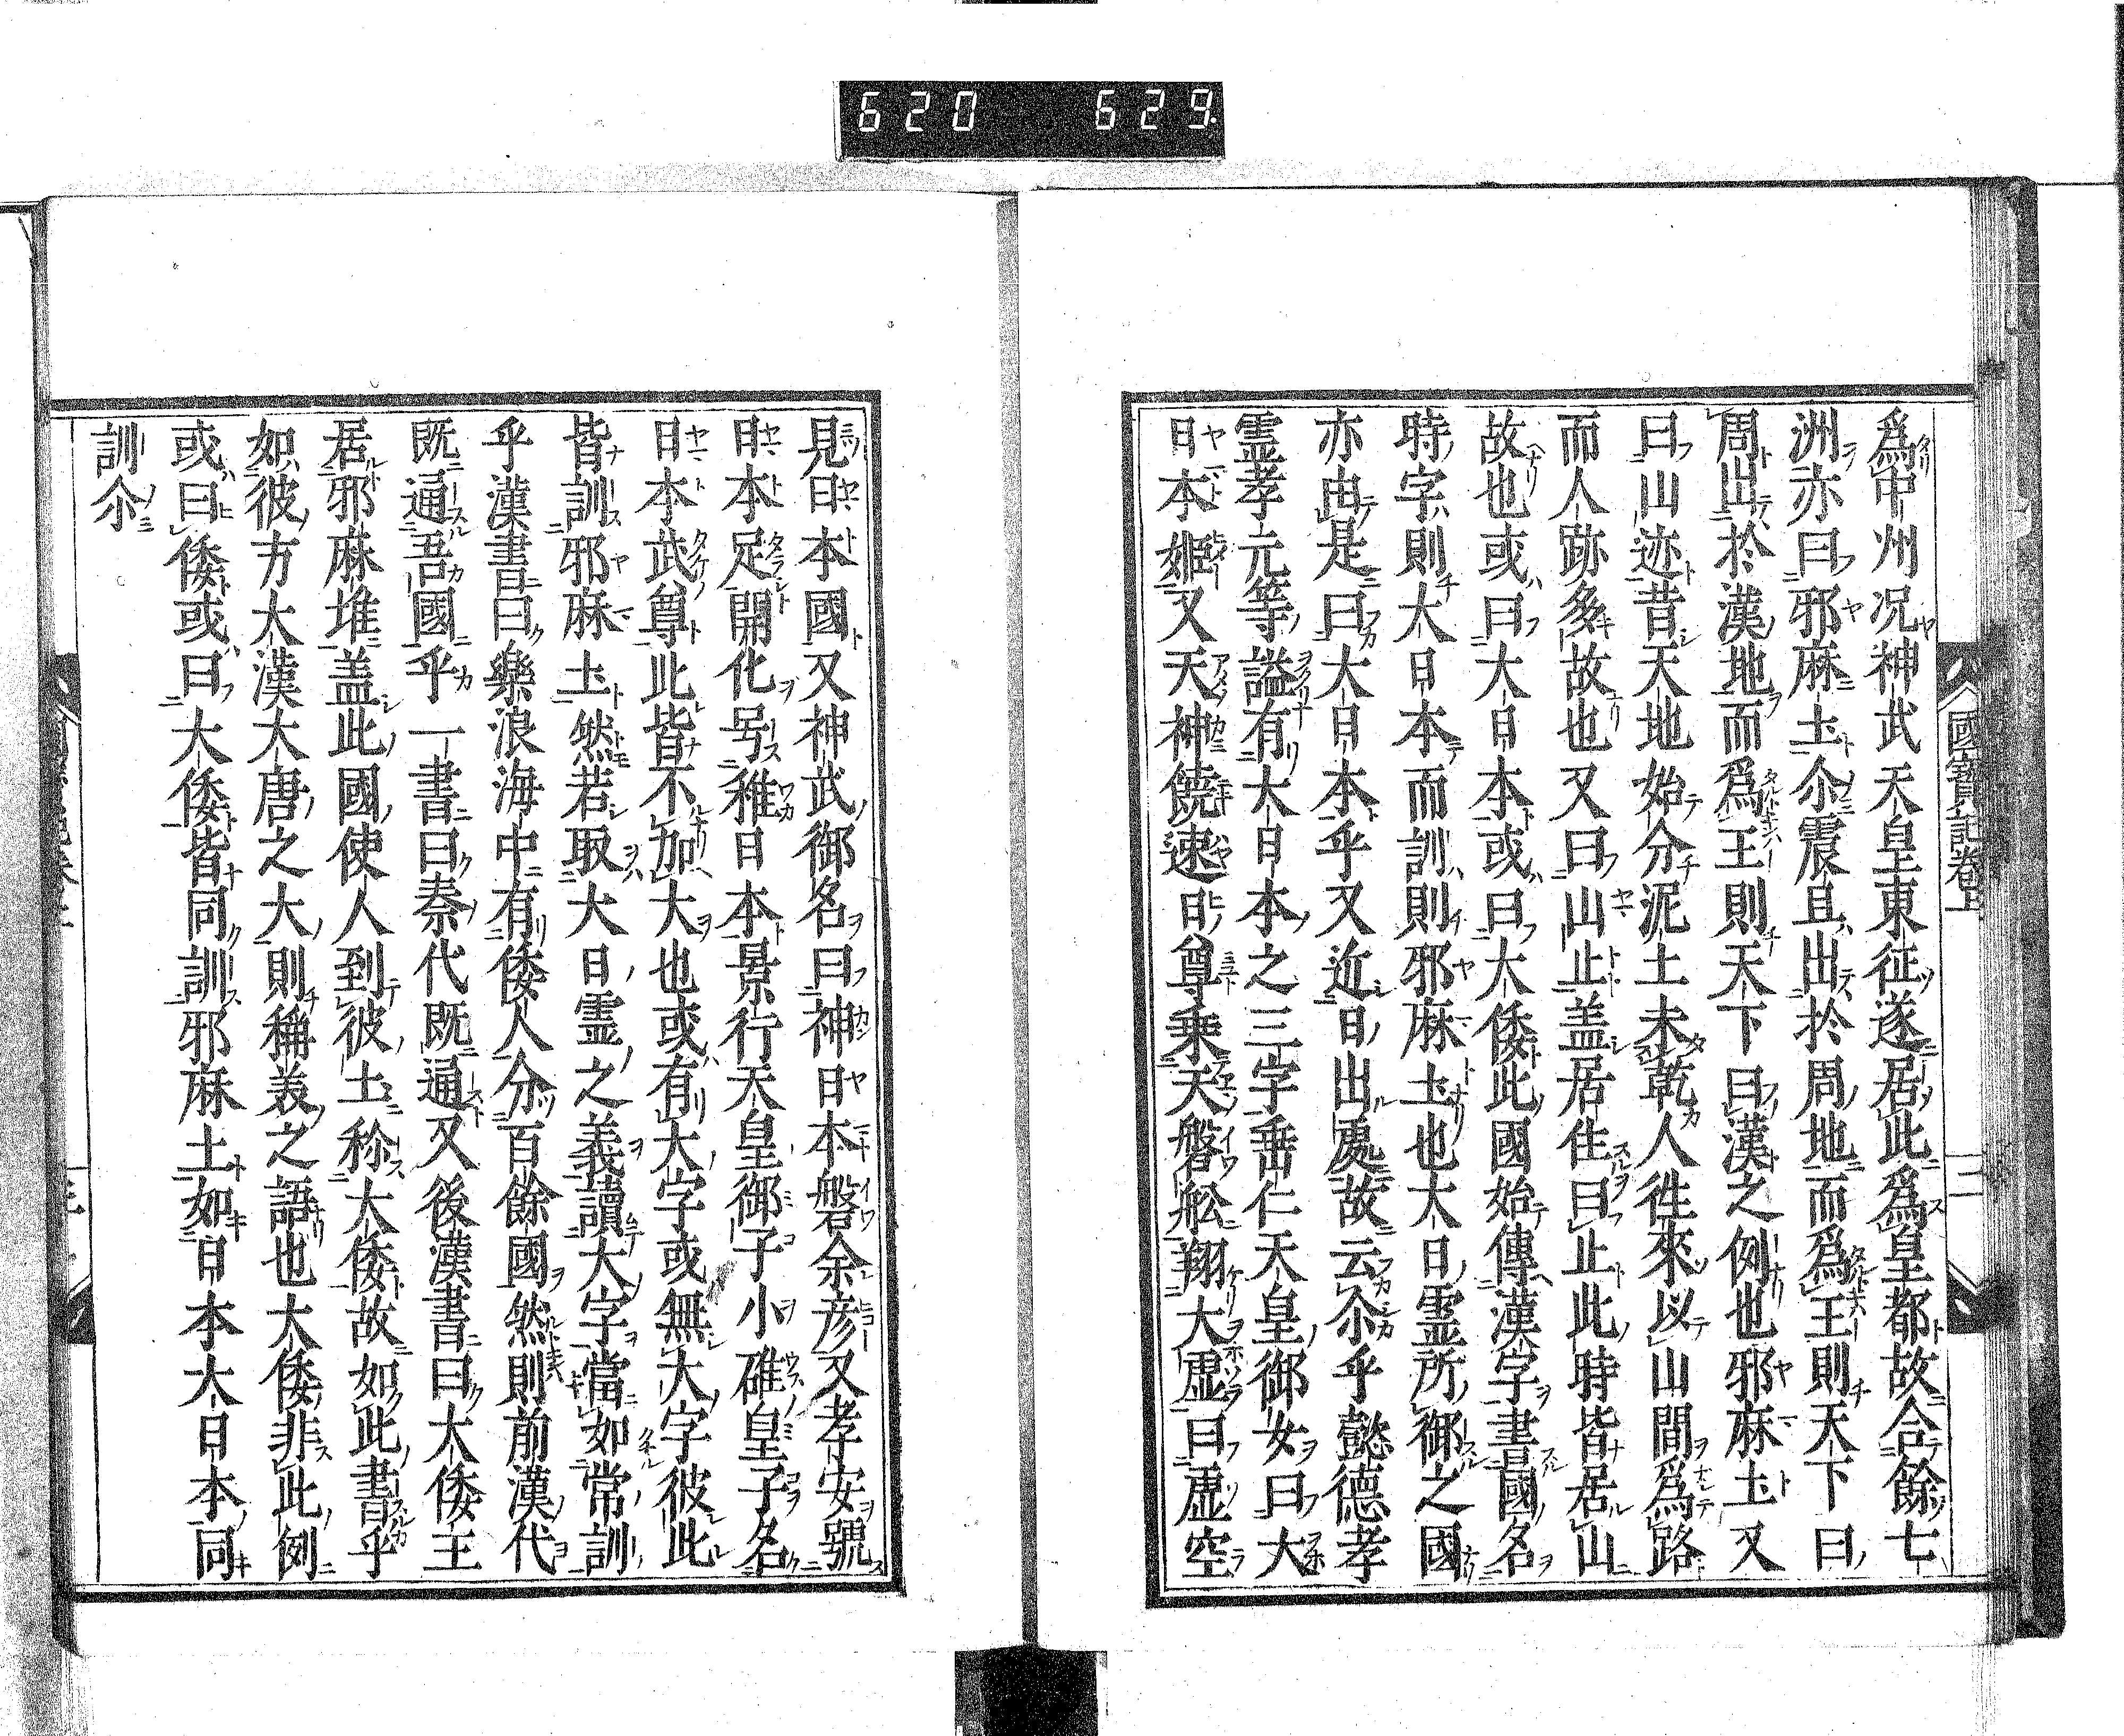 620 629.
國寳記卷上
二
爲中州况神武天皇東征遂居此爲皇都故合餘七
洲亦曰邪麻土尒震旦出於周地而爲王則天下曰
周出於漢地而爲王則天下曰漢之例也邪麻土又
曰山迹昔天地始分泥土未乾人徃來以山間爲路
而人跡多故也又曰山止盖居住曰止此時皆居山
故也或曰大日本或曰大倭此國始傳漢字書國名
時字則大日本而訓則邪麻土也大日霊所御之國
亦由是曰大日本乎又近日出處故云尒乎懿德孝
霊孝元等謚有大日本之三字垂仁天皇御女曰大
日本姬又天神饒速日尊乗天磐舩翔大虛曰虛空
見日本國又神武御名曰神日本磐余彦又孝安號
日本足開化号稚日本景行天皇御子小碓皇子名
日本武尊此皆不加大也或有大字或無大字彼此
皆訓邪麻土然若取大日霊之義讀大字當如常訓
乎漢書曰樂浪海中有倭人分百餘國然則前漢代
既通吾國乎一書曰秦代既通又後漢書曰大倭王
居邪麻堆盖此國使人到彼土称大倭故如此書乎
如彼方大漢大唐之大則稱義之語也大倭非此例
或曰倭或曰大倭皆同訓邪麻土如日本大日本同
訓尒